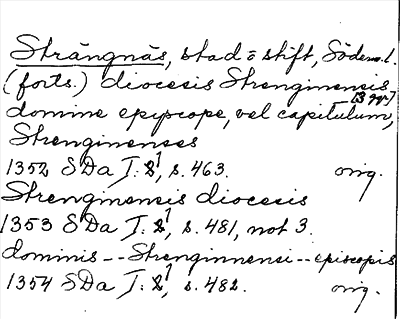 Strängnäs, stad o stift, Söderm. l.
(forts.) diocesis Strenginensis
[3 ggr]
domine episcope, vel capitulum,
Strenginenses
1352 SDa I: 2¹, s. 463. orig.
Strenginensis diocesis
1353 SDa I: 2¹, s. 481, not 3.
dominis -- Strenginnensi -- episcopis
1354 SDa I: 2¹, s. 482. orig.